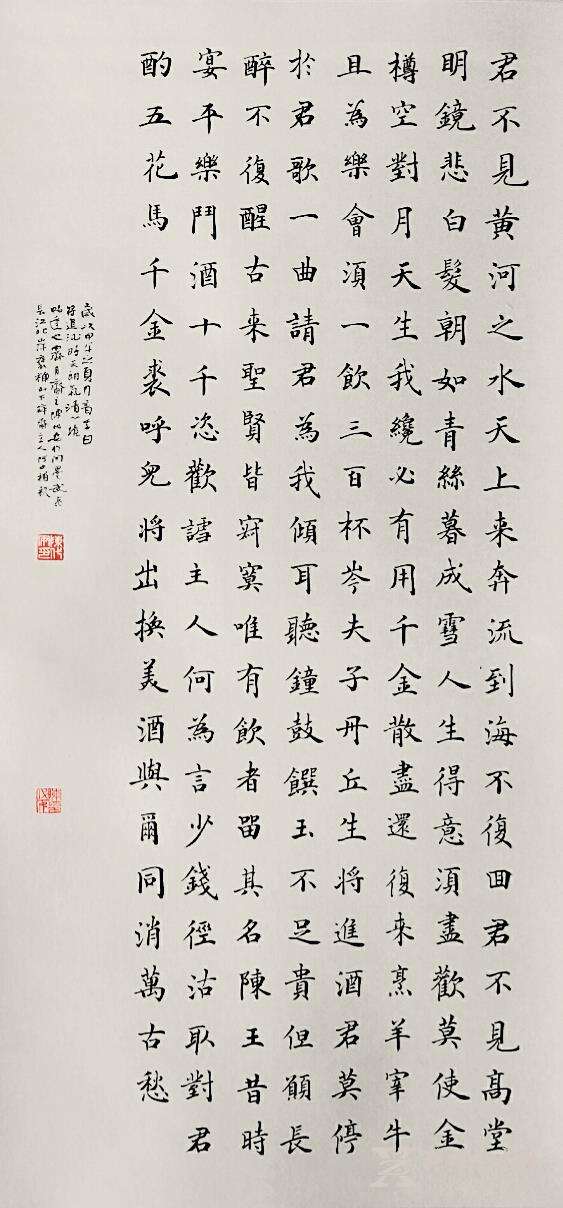 君不見黄河之水天上来奔流到海不復囬君不見高堂
明鏡悲白髮朝如青絲暮成雪人生得意湏盡歡莫使金
樽空對月天生我纔必有用千金散盡還復来烹羊宰牛
且為樂會湏一飲三百杯岑夫子丹丘生将進酒君莫停
於君歌一曲請君為我傾耳聽鐘鼓饌玉不足貴但願長
醉不復醒古来聖賢皆寂寞唯有飲者留其名陳王昔時
宴平樂鬥酒十千恣歡謔主人何為言少錢徑沽取對君
酌五花馬千金裘呼兒将出換美酒與爾同消萬古愁
歲次甲午之